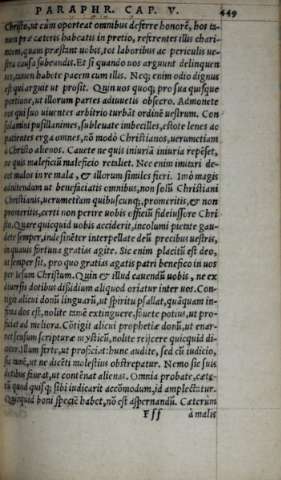 PARAPHR. CAP. V. 449
Christo, ut cùm oporteat omnibus deferre honorē, hos ta-
men præ cæteris habeatis in pretio, referentes illis chari-
nem, quam præstant uobis, tot laboribus ac periculis ue-
stra causa subeundis. Et si quando uos arguunt delinquen
tes, tamen habete pacem cum illis. Neq; enim odio dignus
est qui arguit ut prosit. Quin uos quoq; pro sua quisque
portione, ut illorum partes adiuuetis obsecro. Admonete
eos qui suo uiuentes arbitrio turbāt ordinē uestrum. Con
solamini pusillanimes, subleuate imbecilles, estote lenes ac
patientes erga omnes, nō modò Christianos, uerumetiam
à Christo alienos. Cauete ne quis iniuriā iniuria repēset,
ne quis maleficiū maleficio retaliet. Nec enim imitari de-
cet malos in re mala, & illorum similes fieri. Imò magis
adnitendum ut benefaciatis omnibus, non solū Christiani
Christianis, uerumetiam quibuscunq;, promeritis, & non
promeritis, certi non perire uobis officiū fideiussore Chri
sto. Quare quicquid uobis acciderit, incolumi pietate gau-
dete semper, indesinēter interpellate deū precibus uestris,
in quauis fortuna gratias agite. Sic enim placitū est deo,
ut semper sit, pro quo gratias agatis patri benefico in uos
per Iesum Christum. Quin & illud cauendū uobis, ne ex
diuersis dotibus dissidium aliquod oriatur inter uos. Con-
tigit alicui donū linguarū, ut spiritu psallat, quāquam in-
fima dos est, nolite tamē extinguere, fouete potius, ut pro-
ficiat ad meliora. Cōtigit alicui prophetiæ donū, ut enar-
ret sensum scripturæ mysticū, nolite reijcere quicquid di-
citur, illum ferte, ut proficiat: hunc audite, sed cū iudicio,
sic tamē, ut ne dicēti molestius obstrepatur. Nemo sic suis
dotibus faueat, ut contēnat alienas. Omnia probate, cæte-
rū quod quisq; sibi iudicarit accōmodum, id amplectatur.
Quicquid boni speciē habet, nō est aspernandū. Cæterum
Fff à malis